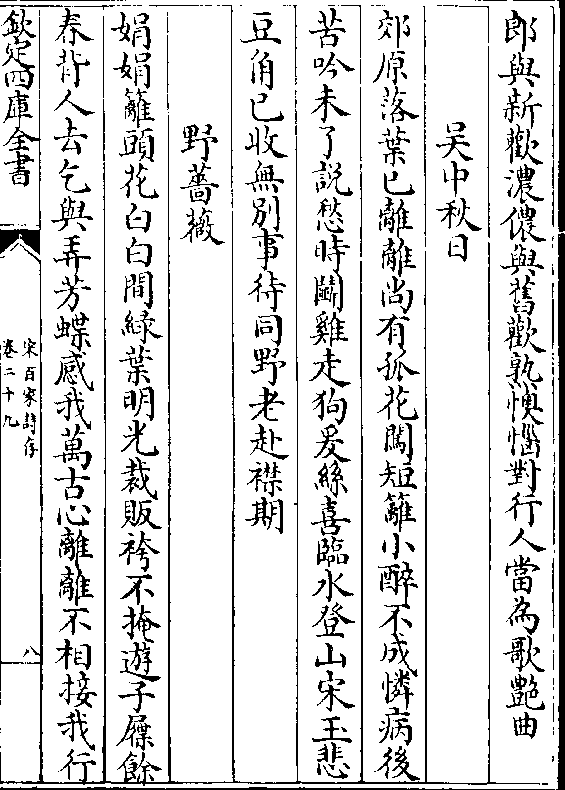 郎與新歡濃儂與舊歡孰懊惱對行人當為歌艷曲
吴中秋日
郊原落葉已離離尚有孤花闖短籬小醉不成憐病後
苦吟未了説愁時鬬雞走狗爰絲喜臨水登山宋玉悲
豆角已收無别事待同野老赴襟期
野薔薇
娟娟籬頭花白白間緑葉明光裁販袴不掩遊子屧餘
春背人去乞與弄芳蝶感我萬古心離離不相接我行
欽定四庫全書
宋百家詩存
卷二十九
八